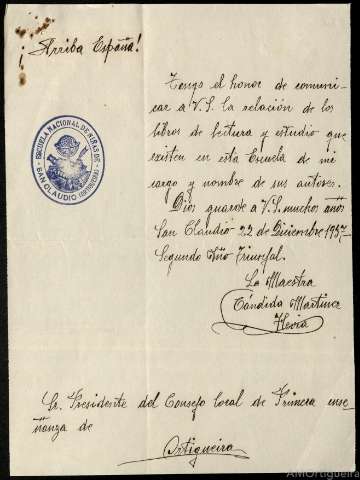 ¡Arriba España!
Tengo el honor de comuni-
car a V.S. la relación de los
libros de lectura y estudio que
existen en esta Escuela de mi
cargo y nombre de sus autores.
Dios guarde a V.S. muchos años
San Claudio 22 de Diciembre 1937
Segundo Año Triunfal.
La Maestra
Cándida Martínez
Hevia
ESCUELA NACIONAL DE NIÑAS DE
SAN CLAUDIO
Sr. Presidente del Consejo Local de Primera ense-
ñanza de
Ortigueira
AMOrtigueira